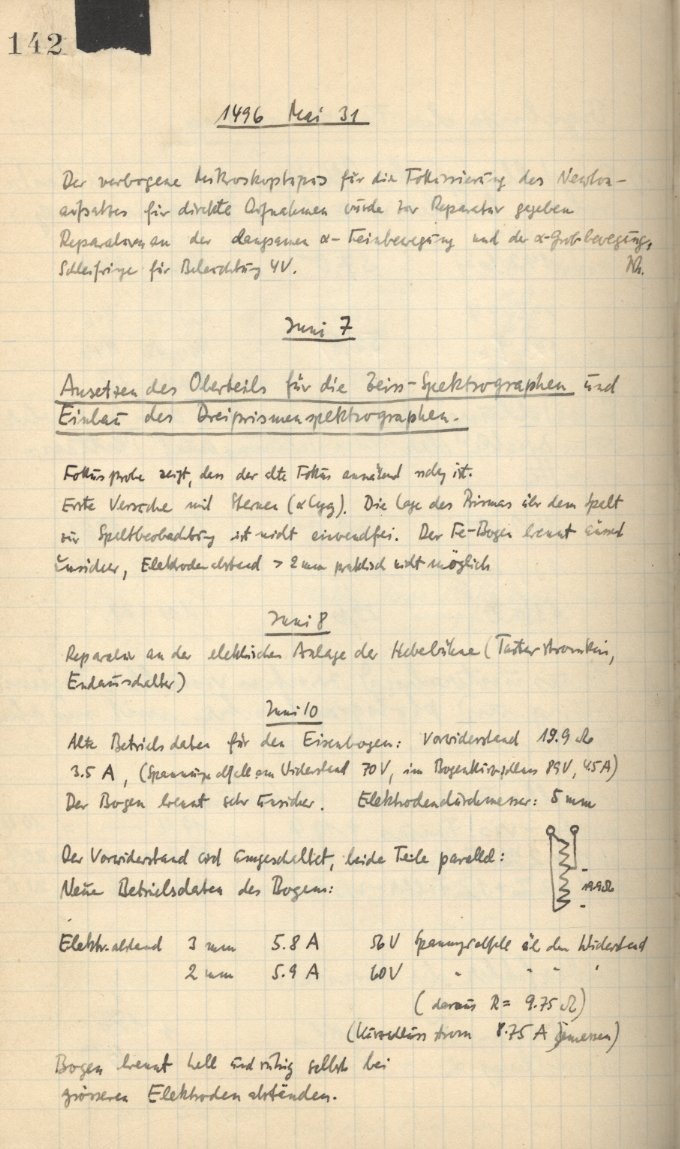 142
1496 Mai 31
Der verbogene Mikroskoptopus für die Fokussierung des Newton-
aufsatzes für direkte Aufnahmen wurde zur Reparatur gegeben
Reparaturen an der langsamen α-Feinbewegung und der α-Grobbewegung,
Schleifringe für Beleuchtung 4V.
Juni 7
Ansetzen des Oberteils für die Zeiss-Spektrographen und
Einbau des Dreiprismenspektrographen.
Fokusprobe zeigt, dass der alte Fokus annähernd richtig ist.
Erste Versuche mit Sternen (α Cyg). Die Lage des Prismas über dem Spalt
zur Spaltbeobachtung ist nicht einwandfrei. Der Fe-Bogen brennt äusserst
unsicher, Elektrodenabstand > 2 mm praktisch nicht möglich
Juni 8
Reparatur an der elektrischen Anlage der Hebebühne (Tasterstromkreis,
Endausschalter)
Juni 10
Alte Betriebsdaten für den Eisenbogen: Vorwiderstand 19.9 Ω
3.5 A, (Spannungsabfall am Widerstand 70V, im Bogenkurzschluss 89V, 4.5A)
Der Bogen brennt sehr unsicher. Elektrodendurchmesser: 5 mm
Der Vorwiderstand wird umgeschaltet, beide Teile parallel:
Neue Betriebsdaten des Bogens:
19.9Ω
Elektr.abstand 3 mm 5.8 A 56V Spannungsabfall über den Widerstand
2 mm 5.9 A 60V " " " "
(daraus R = 9.75 Ω)
(Kurzschlussstrom 8.75 A gemessen)
Bogen brennt hell und ruhig selbst bei
grösseren Elektrodenabständen.